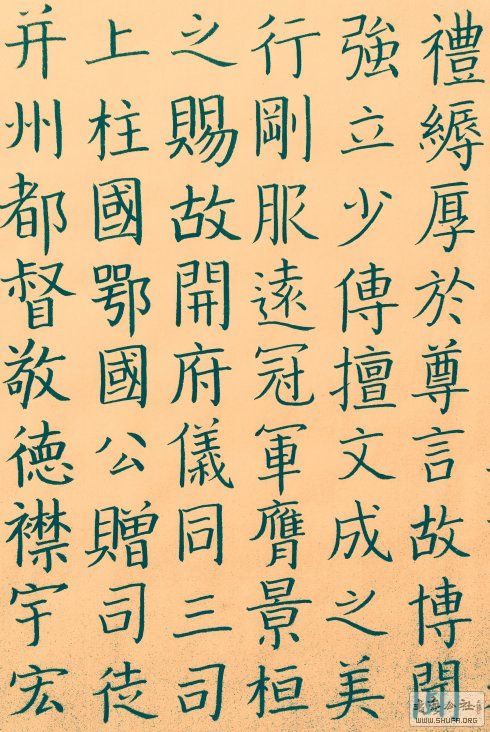 禮縟厚於尊言故博聞
強立少傳擅文成之美
行剛服遠冠軍膺景桓
之賜故開府儀同三司
上柱國鄂國公贈司徒
并州都督敬德襟宇宏
WWW.SHUFA.ORG